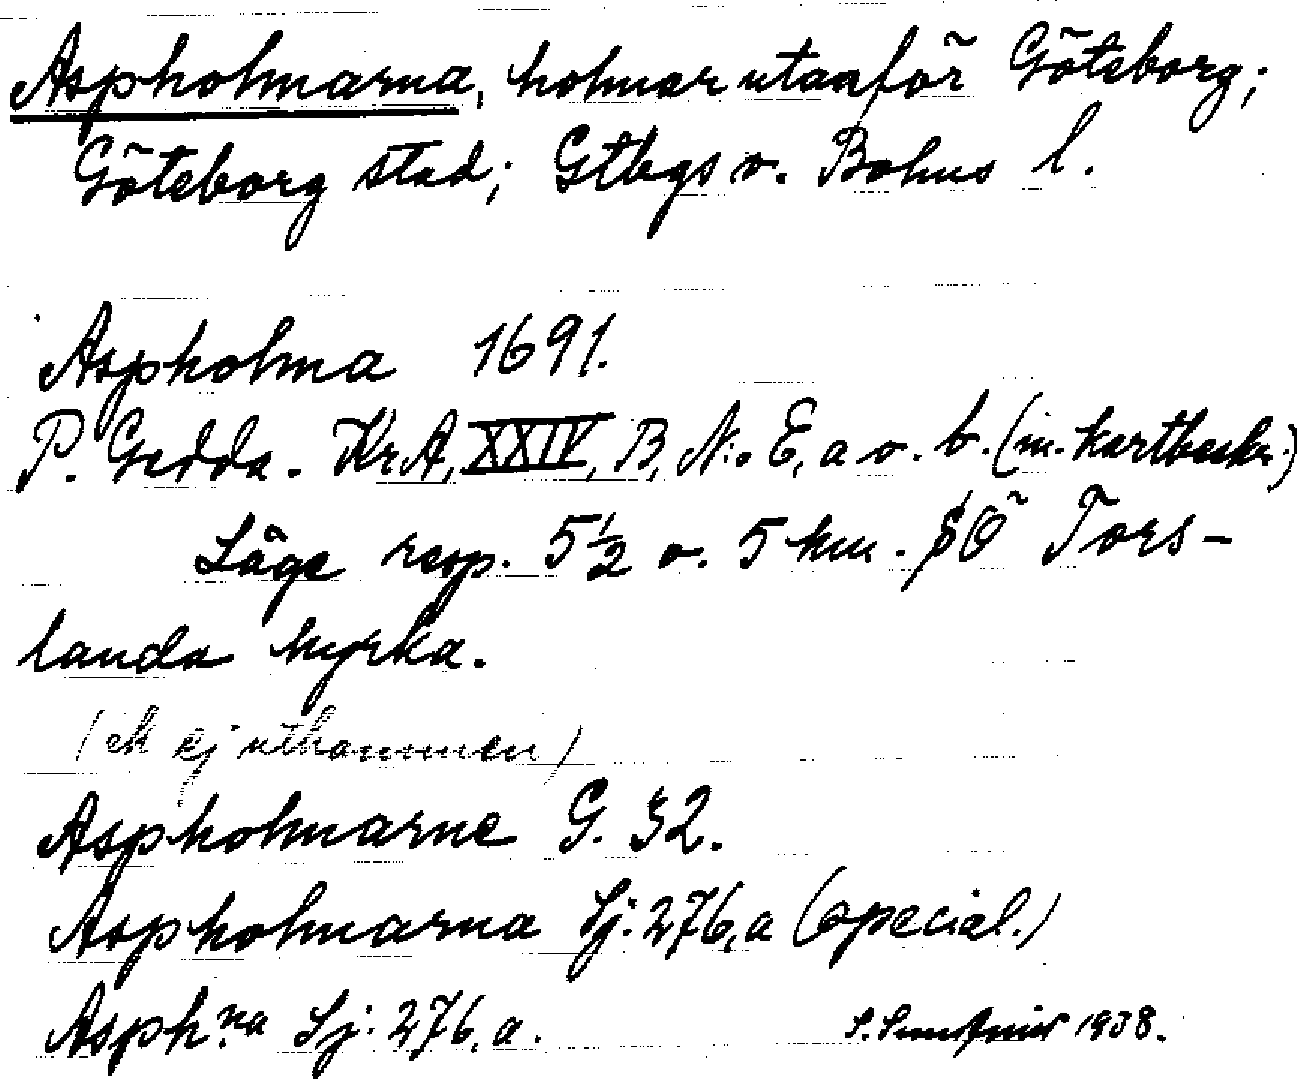 Aspholmarna, holmar utanför Göteborg;
Göteborg stad; Gtbgs o. Bohus l.
Aspholma 1691.
P. Gedda. Kr.A, XXIV, B, N:o E, a o. b. (m. kartbeskr.)
Läge resp. 5½ o. 5 km. SÖ Tors-
landa kyrka.
(ek ej uthommen)
Aspholmarne G. 32.
Aspholmarna Sj: 276, a (special.)
Asph:na Sj: 276, a. S. 1938.